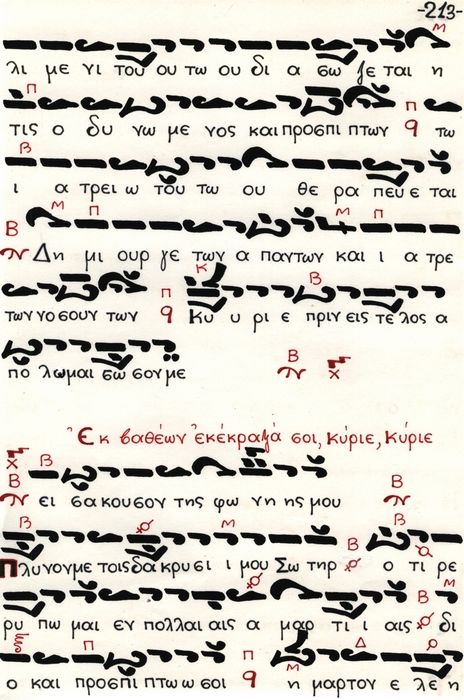 -213-
λι με νι του ου τω ου δι α σω ζε ται η
τις ο δυ νω με νος και προσπι πτων q τω
ι α τρει ω του τω ου θε ρα πευ ε ται
Δη μι ουρ γε των α παντων και ι α τρε
των νο σουν των q Κυ υ ρι ε πριν εις τε λος α
πο λωμαι σω σον με
Ἐκ βαθέων ἐκέκραξά σοι, Κύριε, Κύριε
ει σα κουσον της φω νη ης μου
Πλυνον με τοις δα κρυ σι ι μου Σω τηρ ο τι ρε
ρυ πω μαι εν πολλαι αις α μαρ τι ι αις δι
ο και προσπι πτω ω σοι q η μαρτον ε λε η